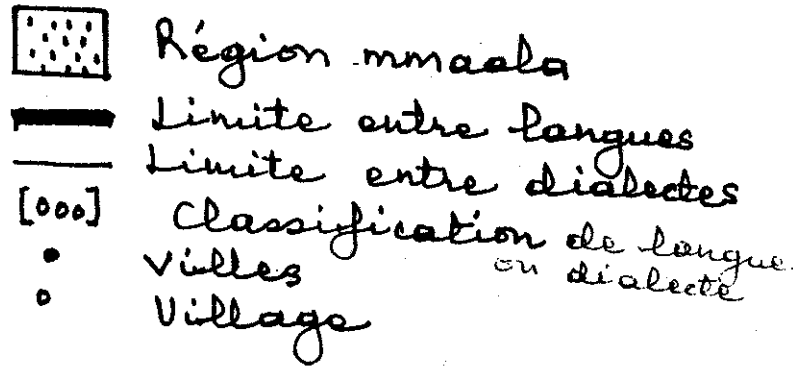 Région mmaala
Limite entre langues
Limite entre dialectes
[000] Classification de langue
ou dialecte
Villes
Village